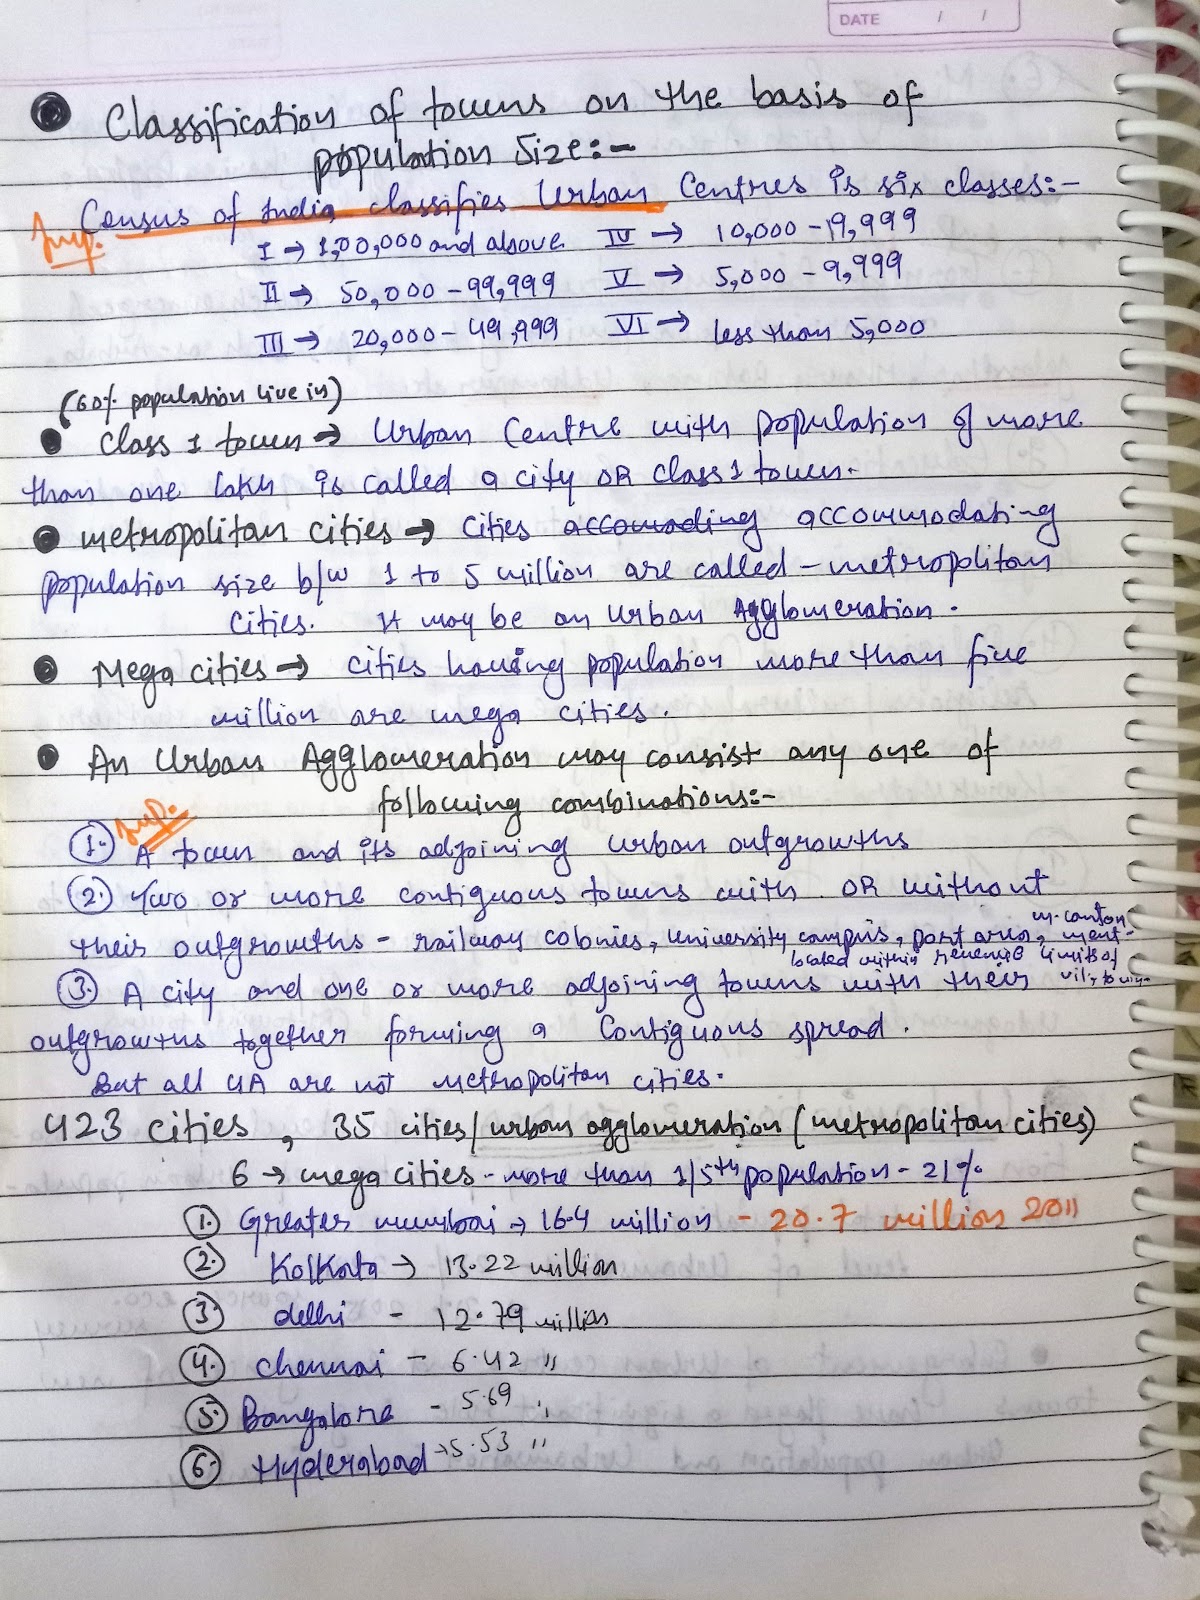 DATE / /
Classification of towns on the basis of
population Size:-
Imp. Census of India classifies Urban Centres is six classes:-
I → 1,00,000 and above IV → 10,000 - 19,999
II → 50,000 - 99,999 V → 5,000 - 9,999
III → 20,000 - 49,999 VI → less than 5,000
(60% population live in)
Class 1 town → Urban Centre with population of more
than one lakh is called a city OR class 1 town.
metropolitan cities → Cities accomoding accommodating
population size b/w 1 to 5 million are called - metropolitan
Cities. It may be an Urban Agglomeration.
Mega cities → cities housing population more than five
million are mega cities.
An Urban Agglomeration may consist any one of
following combinations:-
Imp.
1. A town and its adjoining urban outgrowths
2. Two or more contiguous towns with OR without
their outgrowths - railway colonies, university campus, port area, m. canton
ment-
located within revenue limits of
vil; town
3. A city and one or more adjoining towns with their
outgrowths together forming a Contiguous spread.
But all UA are not metropolitan cities.
423 cities, 35 cities/urban agglomeration (metropolitan cities)
6 → mega cities - more than 1/5th population - 21%
1. Greater mumbai → 16.4 million - 20.7 million 2011
2. Kolkata → 13.22 million
3. delhi - 12.79 million
4. chennai - 6.42 "
5. Bangalore - 5.69 "
6. Hyderabad → 5.53 "